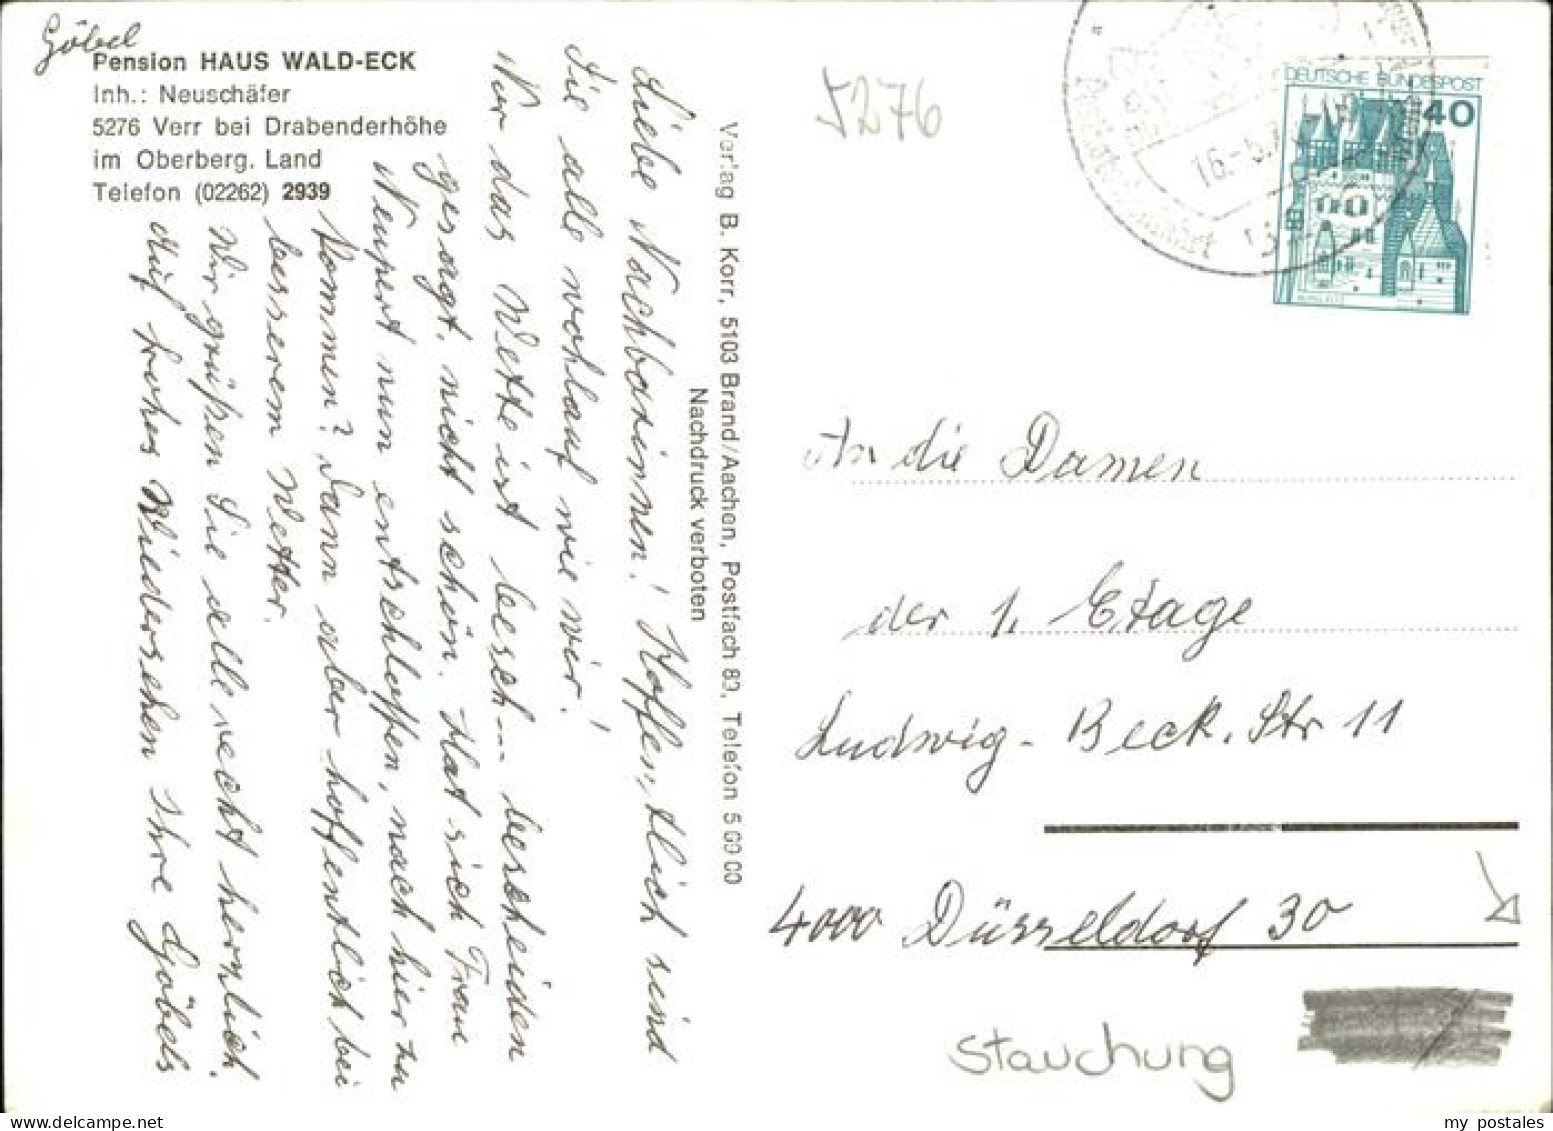 Göbel
Pension HAUS WALD-ECK
Inh.: Neuschäfer
5276 Verr bei Drabenderhöhe
im Oberberg. Land
Telefon (02262) 2939
Liebe Nachbarinnen! Hoffentlich sind
Sie alle wohlauf wie wir!
Nur das Wetter ist besch... bescheiden
gesagt, nicht schön. Hat sich Frau
Neupert nun entschlossen, nach hier zu
kommen? Dann aber hoffentlich bei
besserem Wetter.
Wir grüßen Sie alle recht herzlich.
Auf frohes Wiedersehen Ihre Göbels
Verlag B. Korr, 5103 Brand/Aachen, Postfach 80, Telefon 5 00 00
Nachdruck verboten
5276
16.-5.
DEUTSCHE BUNDESPOST
40
BURG ELTZ
An die Damen
der 1. Etage
Ludwig-Beck.Str 11
4000 Düsseldorf 30
Stauchung
my postales